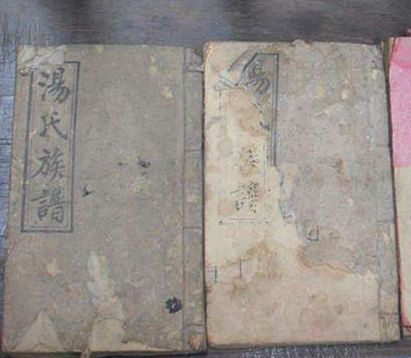 湯氏族譜
湯氏族譜